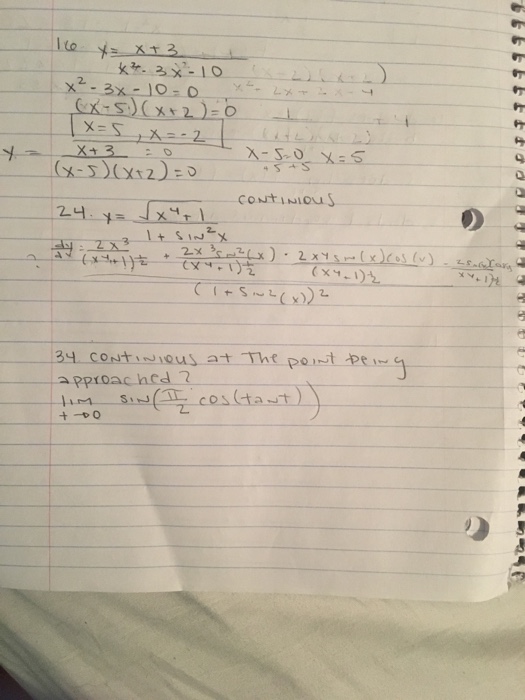 16 y = x + 3
x² - 3x - 10
x² - 3x - 10 = 0
(x - 5)(x + 2) = 0
x = 5, x = -2
y = x + 3 = 0
(x - 5)(x + 2) = 0
x - 5 = 0 x = 5
+5 +5
continious
24. y = √x⁴ + 1
1 + sin² x
? dy 2x³ + 2x³ sin²(x) - 2x⁴ sin(x) cos(x)
(x⁴ + 1)½ (x⁴ + 1)½ (x⁴ + 1)½
(1 + sin²(x))²
34 continious at the point being
approached?
lim sin(π/2 cos(tan t))
t → 0